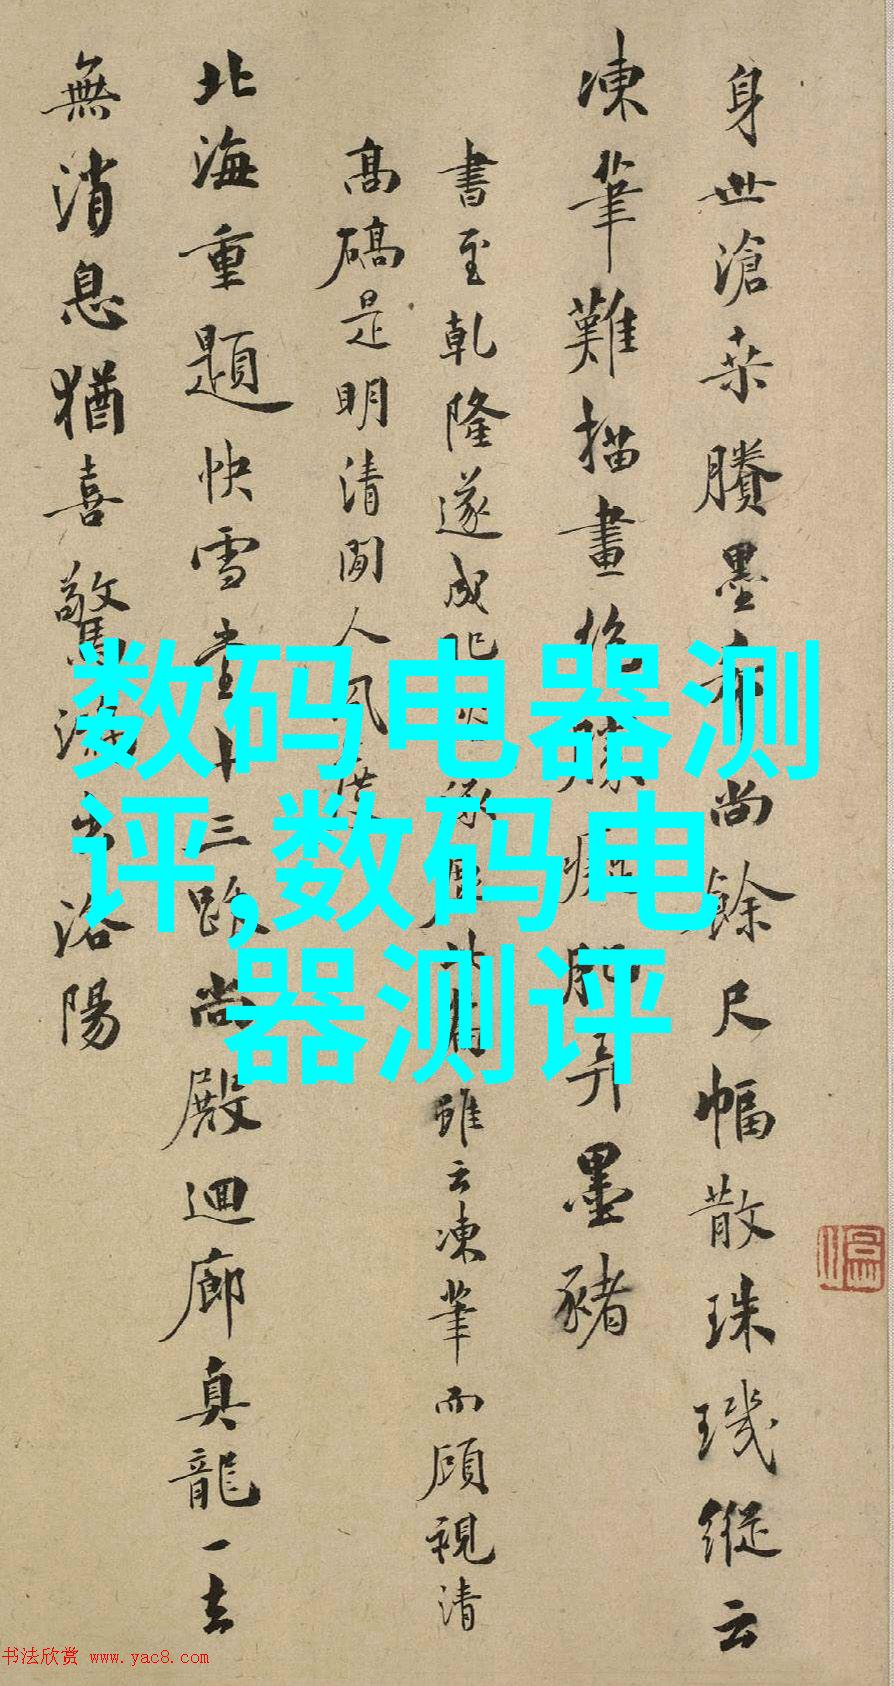 身世滄桑賸墨希尚餘尺幅散珠璣縱云
凍筆難描畫勝肥弄墨豬
書至乾隆遂成雖云凍筆而顧視清
高碻是明清間人風度
北海重題快雪堂十三尚殿迴廊真龍一去
無消息猶喜驚洛陽
数码电器测
评,数码电
器测评
书法欣赏 www.yac8.com